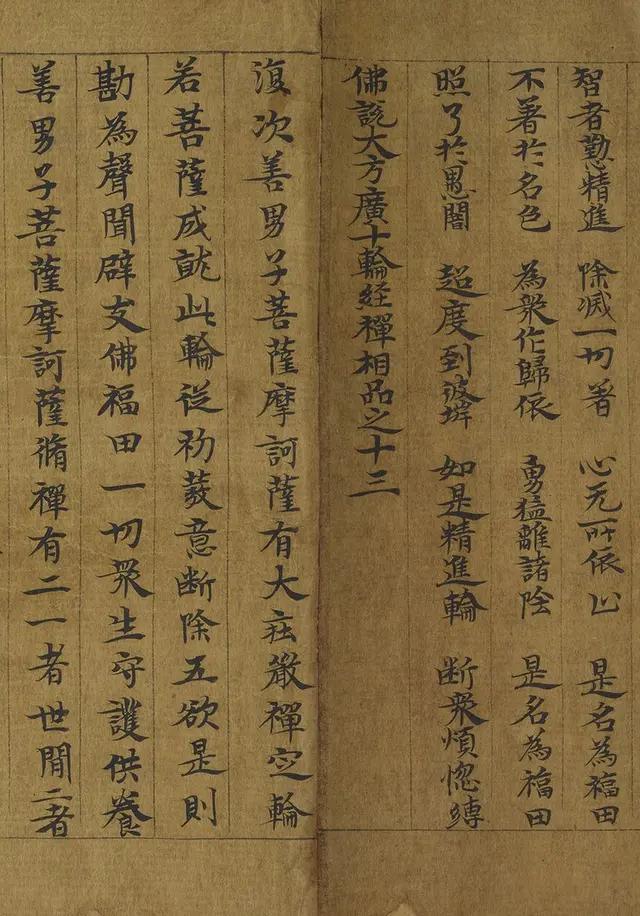 智者懃精進　除滅一切著　心无所依止　是名為福田
不著於名色　為衆作歸依　勇猛離諸陰　是名為福田
照了於愚闇　超度到彼岸　如是精進輪　断衆煩惚縛
佛說大方廣十輪経禪相品之十三
復次善男子菩薩摩訶薩有大莊嚴禪定輪
若菩薩成就此輪従初發意断除五欲是則
勘為聲聞辟支佛福田一切衆生守護供養
善男子菩薩摩訶薩脩禪有二一者世間二者